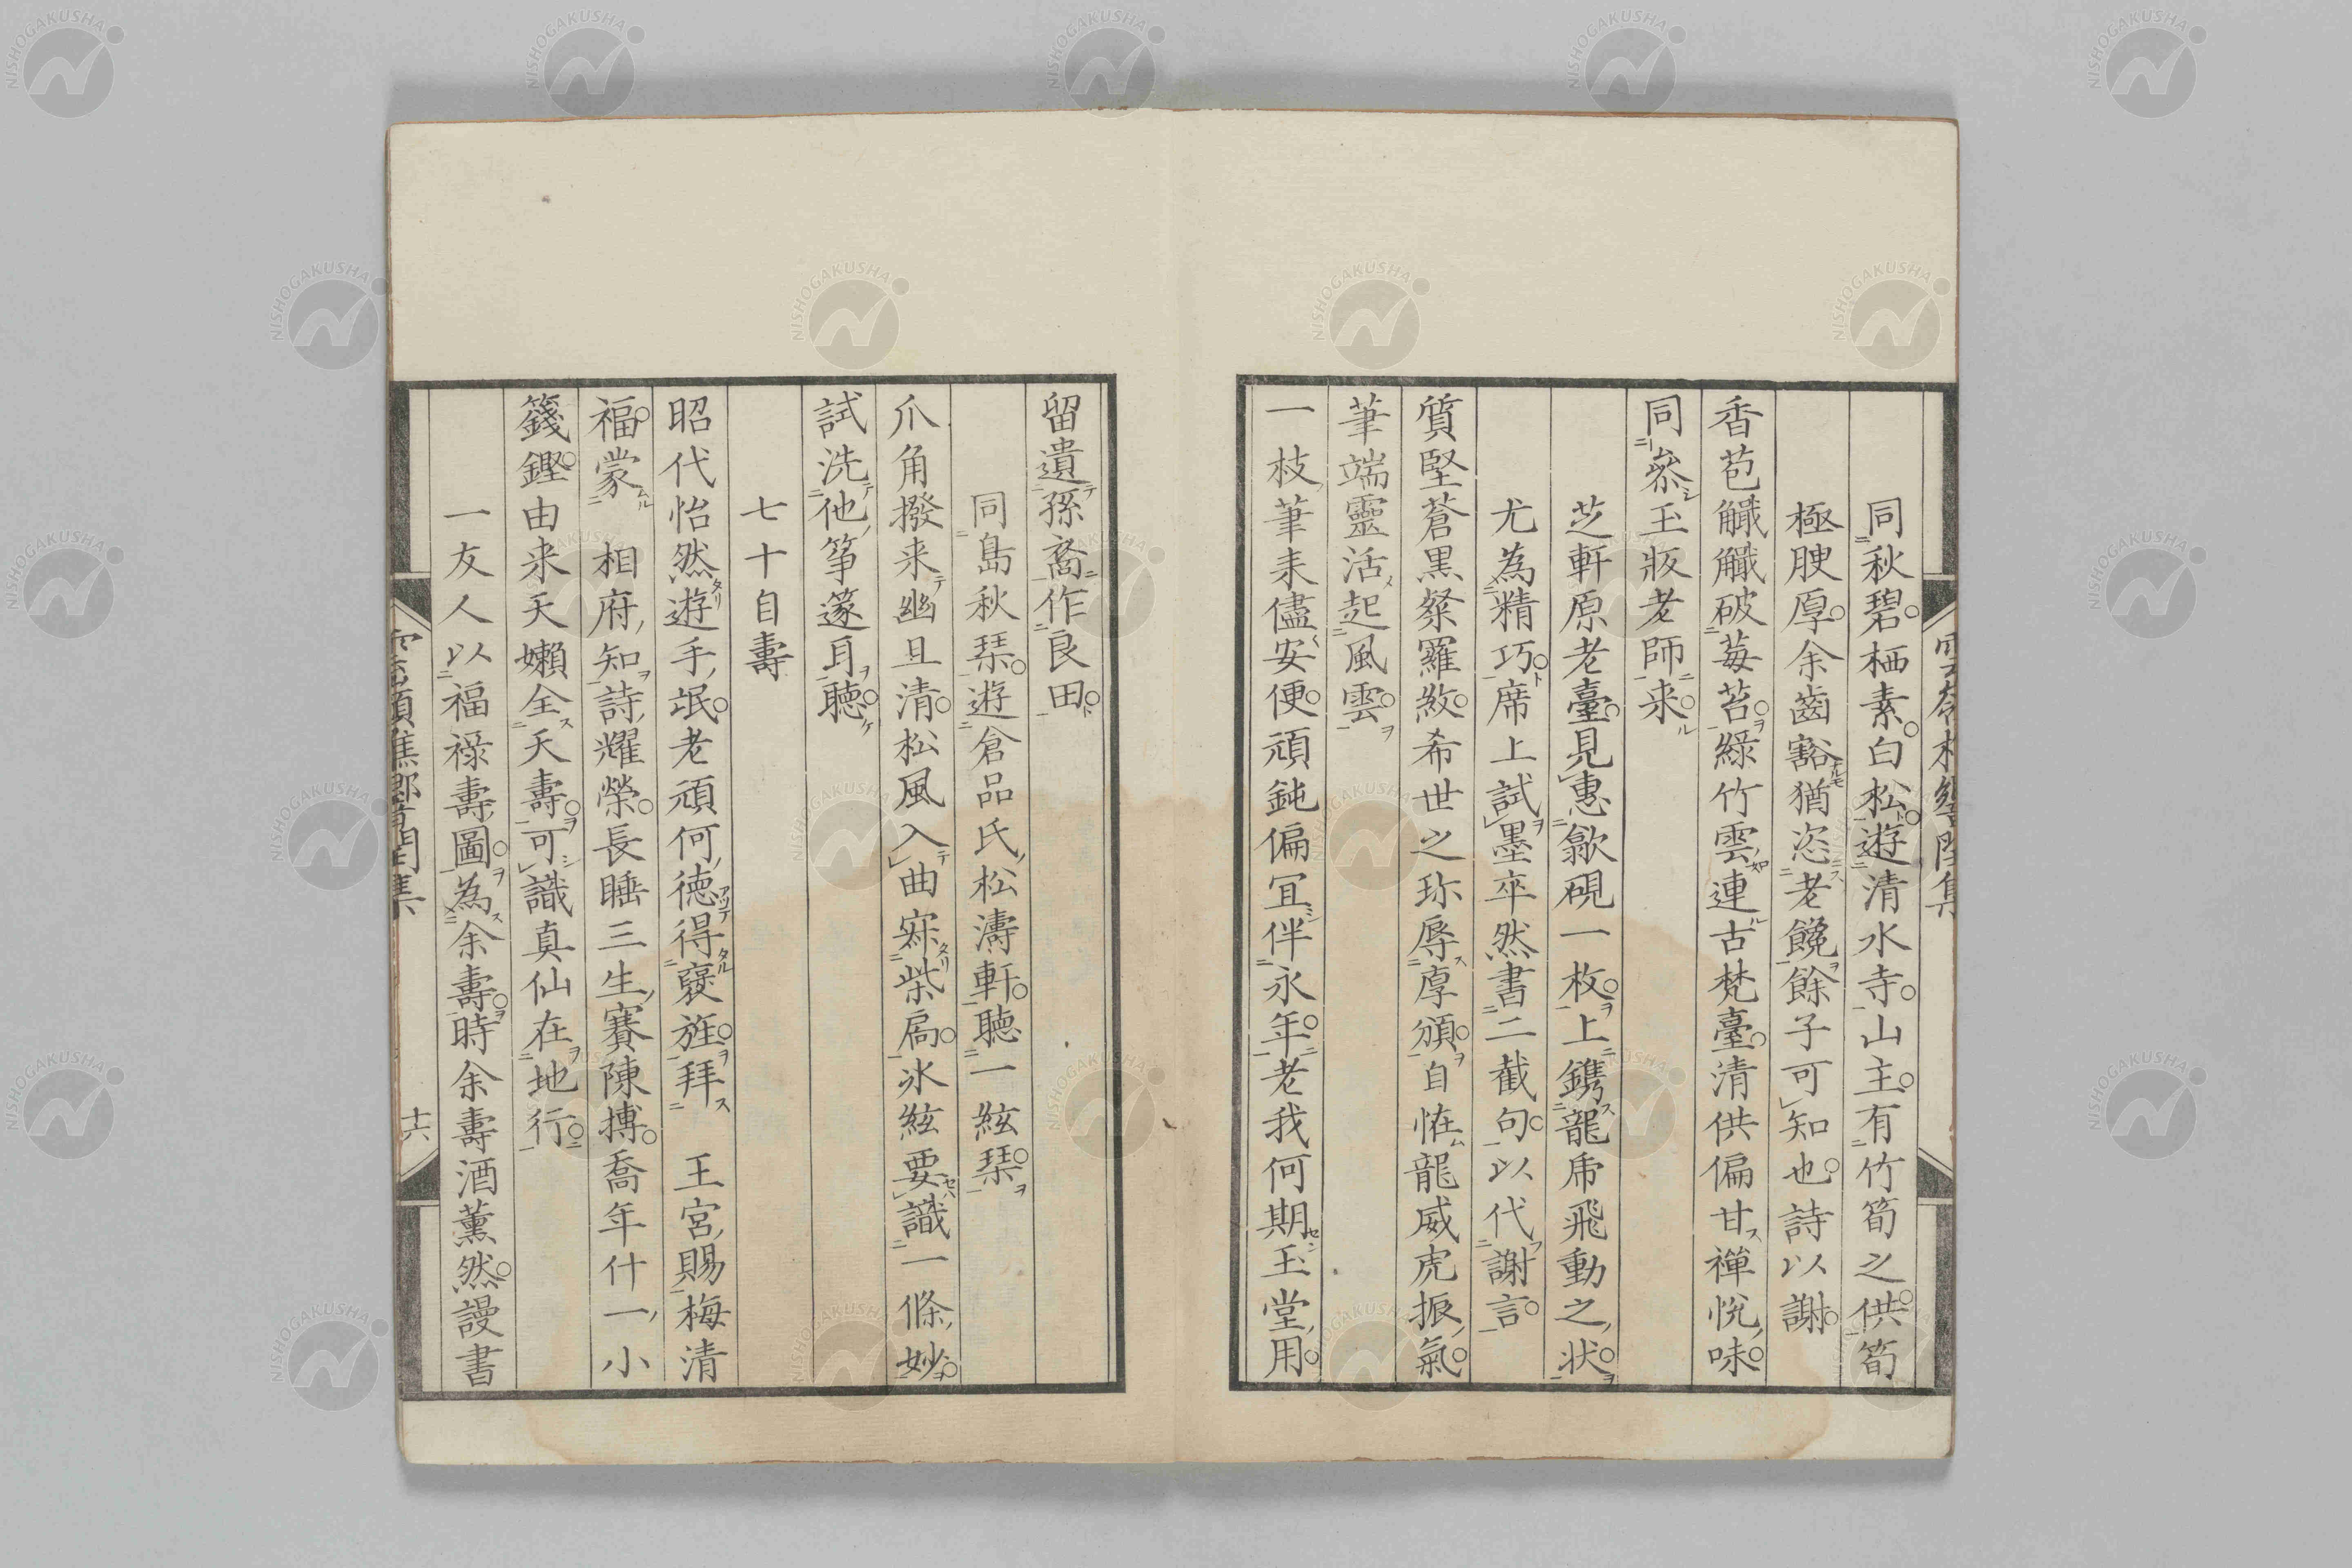 同秋碧栖素白松遊清水寺山主有竹筍之供筍
極腴厚余齒豁猶恣老饞餘子可知也詩以謝
香苞觽觽破莓苔綠竹雲連古梵臺清供偏甘禪悅味
同叅玉版老師来
芝軒原老臺見惠歙硯一枚上鐫龍虎飛動之狀
尤為精巧席上試墨卒然書二截句以代謝言
質堅蒼黒粲羅紋希世之珎辱厚頒自恠龍威虎振氣
筆端靈活起風雲
一枝筆耒儘安便頑鈍偏宜伴永年老我何期玉堂用
留遺孫裔作良田
同島秋琹遊倉品氏松濤軒聴一絃琹
爪角撥来幽且清松風入曲寂柴扃冰絃要識一條妙
試洗他箏篴耳聴
七十自壽
昭代怡然遊手氓老頑何徳得褒旌拜 王宮賜梅清
福蒙 相府知詩耀榮長睡三生賽陳摶喬年什一小
籛鏗由来天嬾全天壽可識真仙在地行
一友人以福禄壽圖為余壽時余壽酒薰然謾書
十六
NISHOGAKUSHA